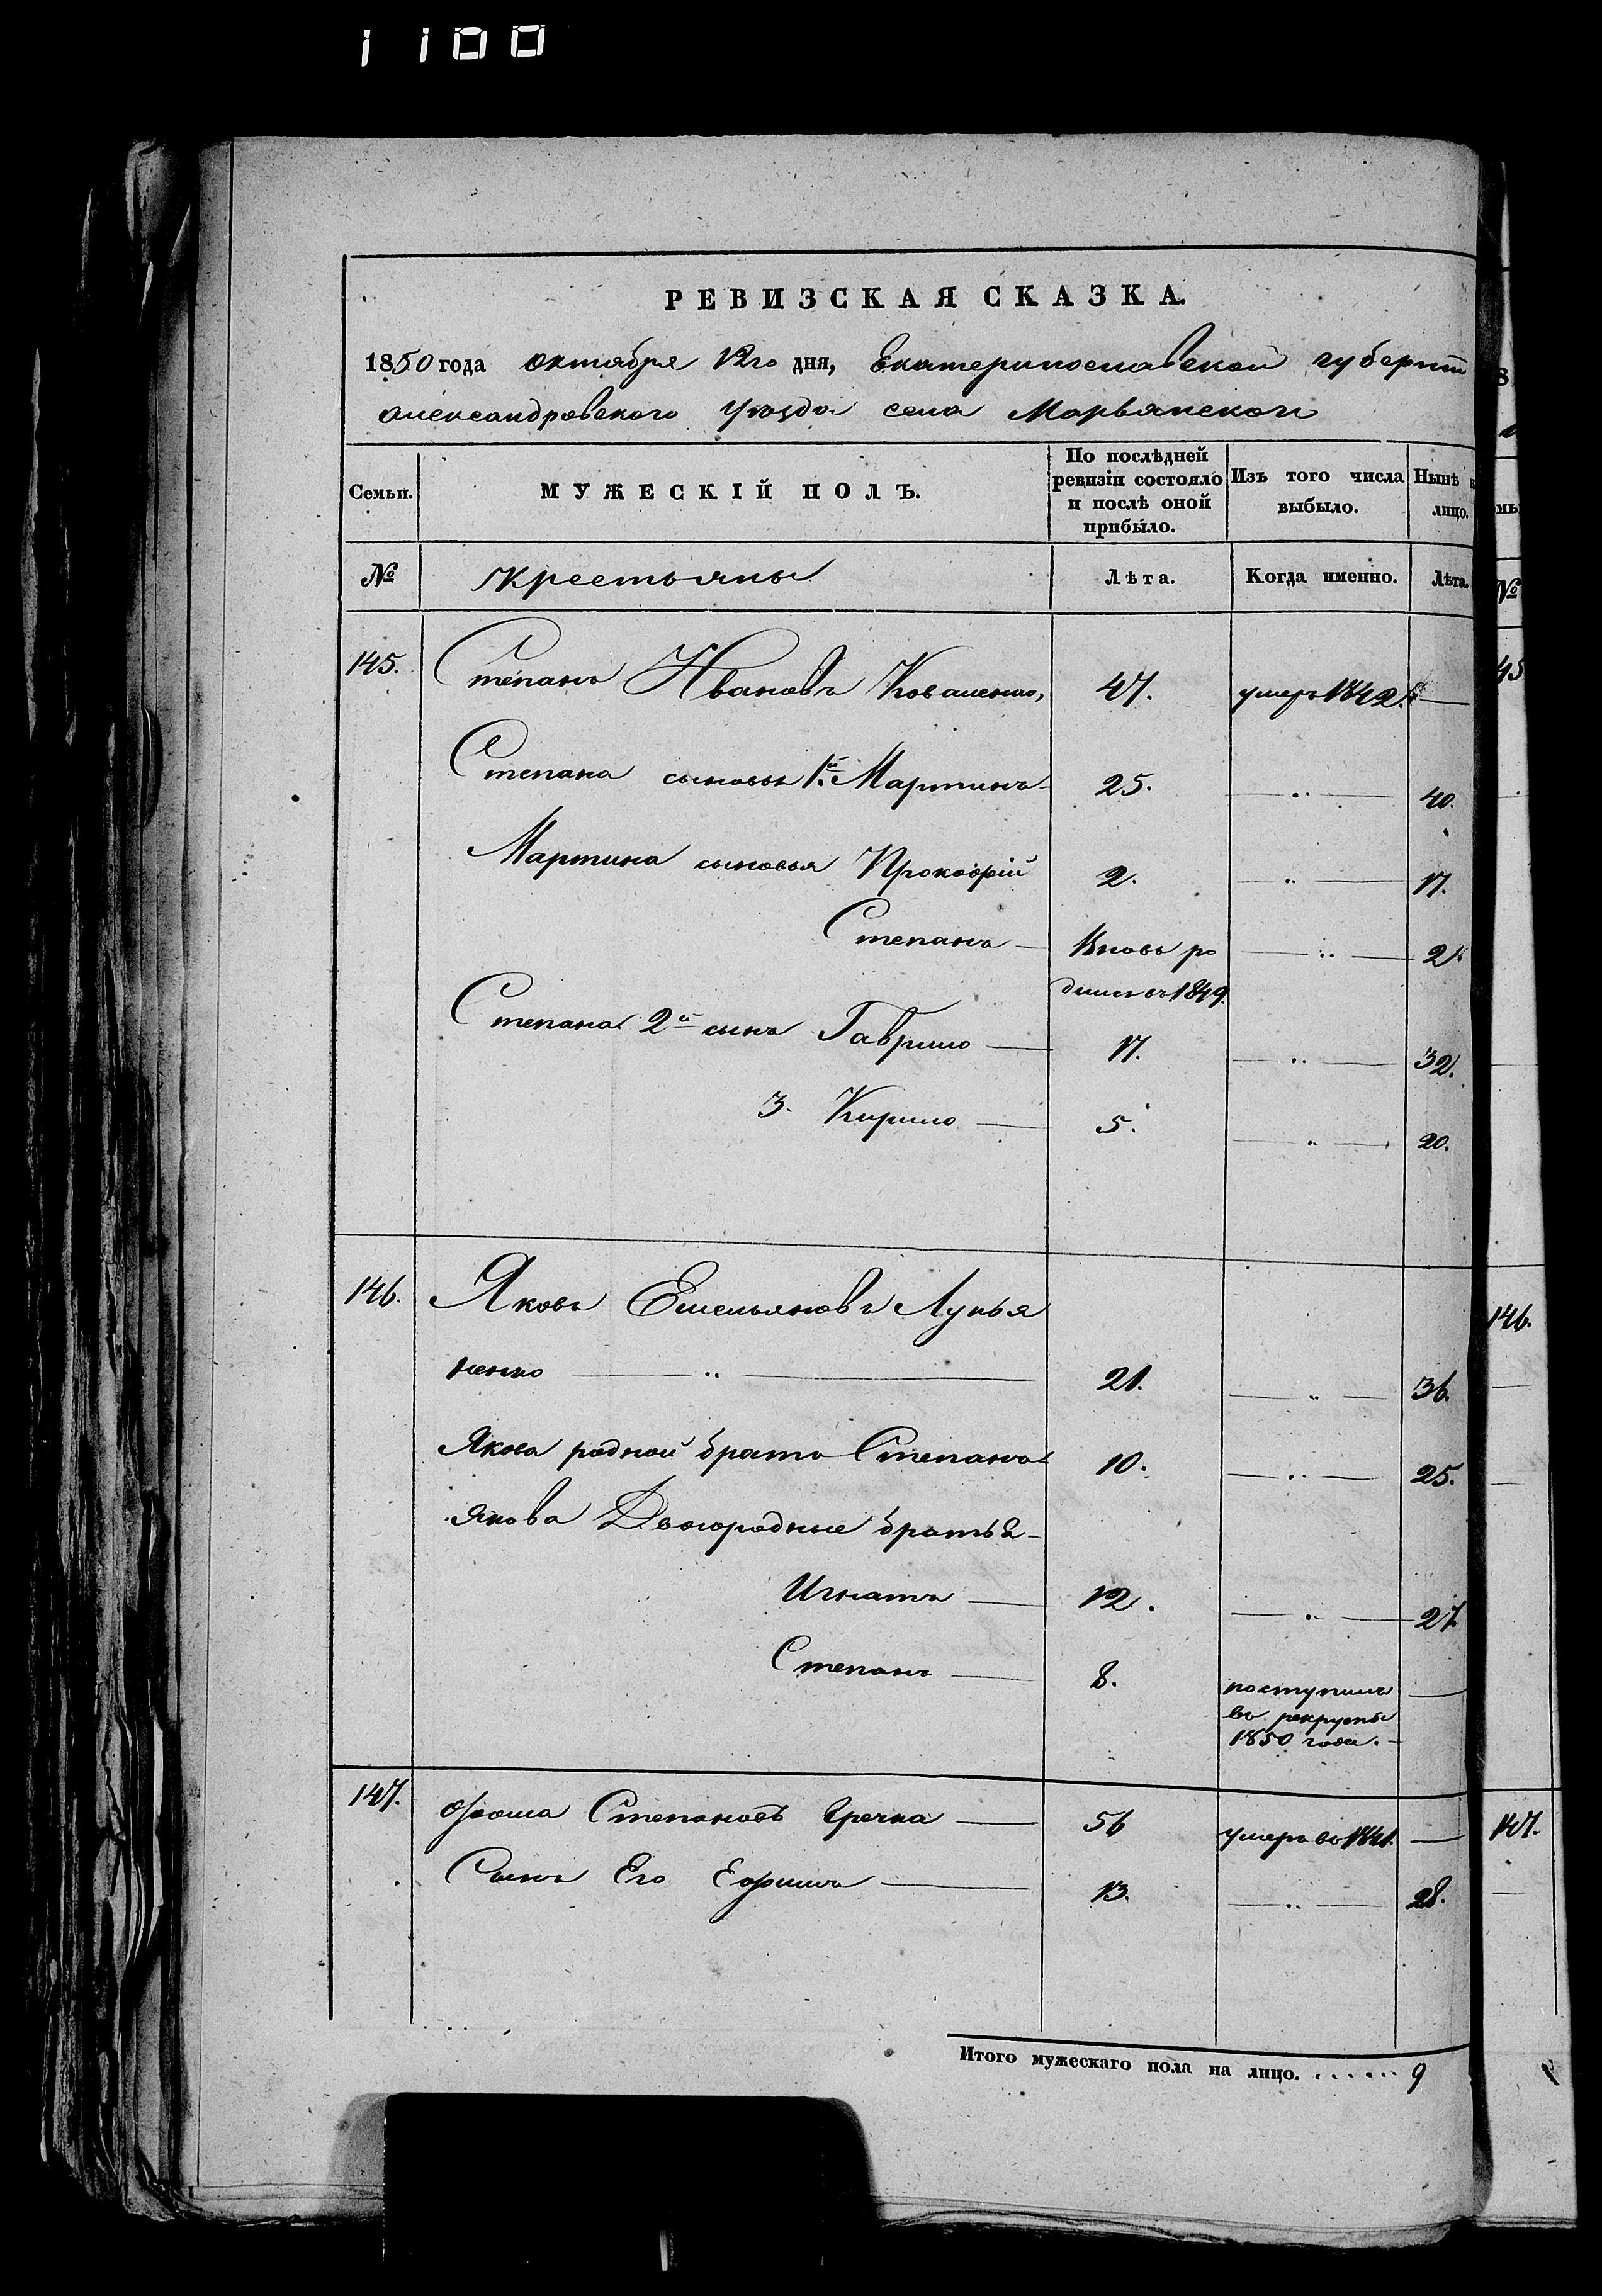 1100
РЕВИЗСКАЯ СКАЗКА.
1850 года октября 12го дня, Екатеринославской губерніи
Александровского уѣзда села Марьянской
Семьи. МУЖЕСКІЙ ПОЛЪ. По послѣдней ревизіи состояло и послѣ оной прибыло. Изъ того числа выбыло. Нынѣ лицо.
№ крестьяны Лѣта. Когда именно. Лѣта.
145. Степанъ Ивановъ Коваленко, 47. умеръ 1842. —
Степана сыновья 1й Мартинъ 25. — „ — 40.
Мартина сыновья Прокофій 2. — „ — 17.
Степанъ — Вновь ро — „ — 2.
дился въ 1849.
Степана 2й сынъ Гаврило — 17. — „ — 32.
3. Кирило — 5. — „ — 20.
146. Яковъ Емельяновъ Лукья
ненко — „ — 21. — „ — 36.
Якова родной братъ Степанъ 10. — „ — 25.
Якова Двоюродные братья —
Игнатъ — 12. — „ — 27
Степанъ — 8. поступилъ —
въ рекруты
1850 года. —
147. Фома Степановъ Гречка — 56 умеръ въ 1841. —
Сынъ Его Ефимъ — 13. — „ — 28.
Итого мужескаго пола на лицо. . . . . . . 9
8
мы
№
45
146.
147.